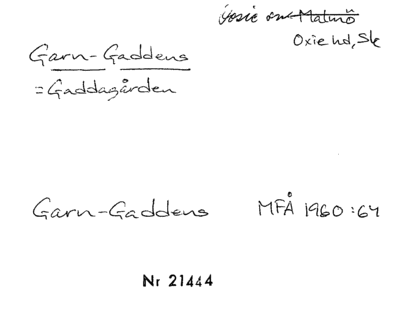 Oxie hd, Sk
Garn-Gaddens
= Gaddagården
Garn-Gaddens MFÅ 1960:64
Nr 21444